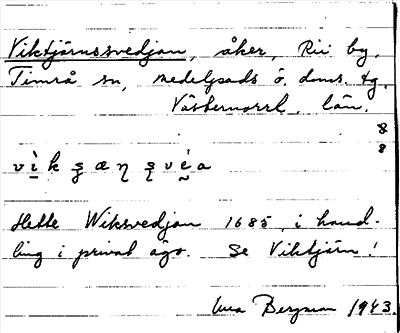 Viktjärnssvedjan, åker, Rie by,
Timrå sn, Medelpads ö. doms. tg,
Västernorrl. län.
8
8
Hette Wiksvedjan 1685, i hand-
ling i privat ägo. Se Viktjärn!
Bergman 1943.